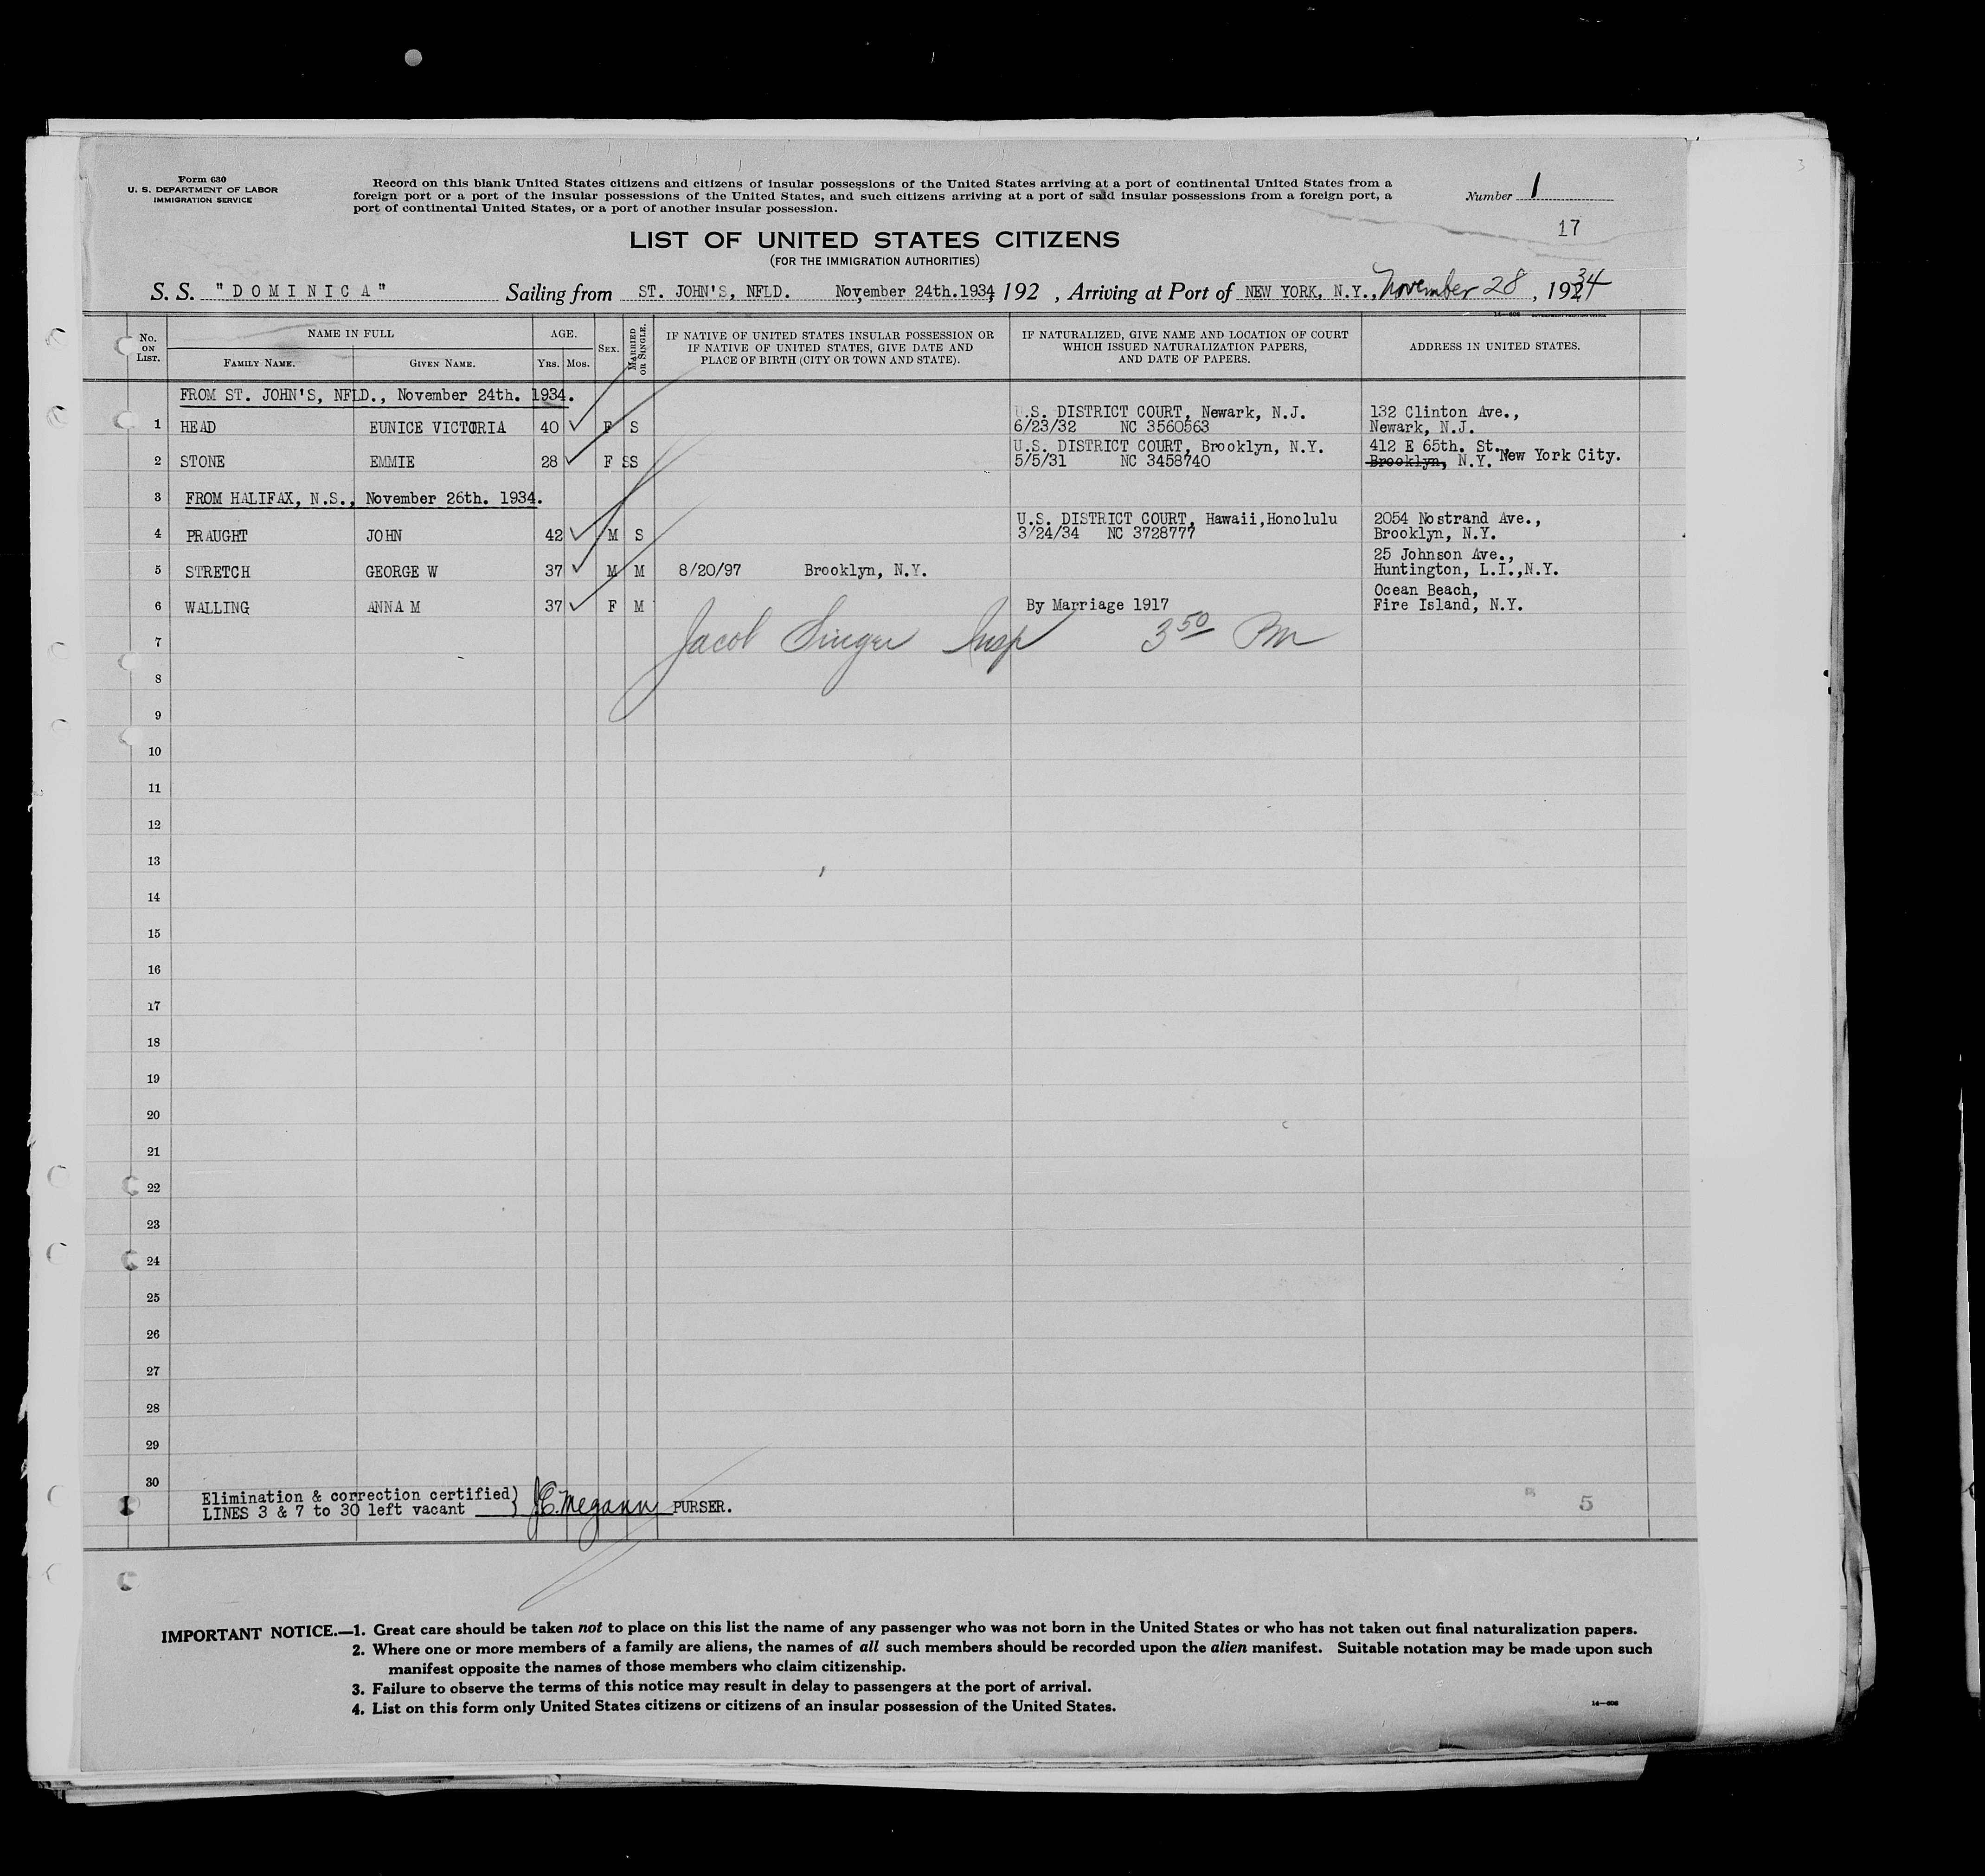 Form 630
U. S. DEPARTMENT OF LABOR
IMMIGRATION SERVICE
Record on this blank United States citizens and citizens of insular possessions of the United States arriving at a port of continental United States from a
foreign port or a port of the insular possessions of the United States, and such citizens arriving at a port of said insular possessions from a foreign port, a
port of continental United States, or a port of another insular possession.
Number 1
17
LIST OF UNITED STATES CITIZENS
(FOR THE IMMIGRATION AUTHORITIES)
S. S. "DOMINICA" Sailing from ST. JOHN'S, NFLD. November 24th.1934, 192 , Arriving at Port of NEW YORK, N.Y., November 28, 1934
No. ON LIST. NAME IN FULL AGE. SEX. MARRIED OR SINGLE. IF NATIVE OF UNITED STATES INSULAR POSSESSION OR IF NATIVE OF UNITED STATES, GIVE DATE AND PLACE OF BIRTH (CITY OR TOWN AND STATE). IF NATURALIZED, GIVE NAME AND LOCATION OF COURT WHICH ISSUED NATURALIZATION PAPERS, AND DATE OF PAPERS. ADDRESS IN UNITED STATES.
FAMILY NAME. GIVEN NAME. YRS. MOS.
FROM ST. JOHN'S, NFLD., November 24th. 1934.
U.S. DISTRICT COURT, Newark, N.J. 132 Clinton Ave.,
1 HEAD EUNICE VICTORIA 40 F S 6/23/32 NC 3560563 Newark, N.J.
U.S. DISTRICT COURT, Brooklyn, N.Y. 412 E 65th. St.,
2 STONE EMMIE 28 F SS 5/5/31 NC 3458740 Brooklyn, N.Y. New York City.
3 FROM HALIFAX, N.S., November 26th. 1934.
U.S. DISTRICT COURT, Hawaii,Honolulu 2054 Nostrand Ave.,
4 PRAUGHT JOHN 42 M S 3/24/34 NC 3728777 Brooklyn, N.Y.
25 Johnson Ave.,
5 STRETCH GEORGE W 37 M M 8/20/97 Brooklyn, N.Y. Huntington, L.I.,N.Y.
Ocean Beach,
6 WALLING ANNA M 37 F M By Marriage 1917 Fire Island, N.Y.
7 Jacob Singer Insp 3 50 Pm
8
9
10
11
12
13
14
15
16
17
18
19
20
21
22
23
24
25
26
27
28
29
30
Elimination & correction certified)
LINES 3 & 7 to 30 left vacant J.C. Megann PURSER.
5
IMPORTANT NOTICE.—1. Great care should be taken not to place on this list the name of any passenger who was not born in the United States or who has not taken out final naturalization papers.
2. Where one or more members of a family are aliens, the names of all such members should be recorded upon the alien manifest. Suitable notation may be made upon such
manifest opposite the names of those members who claim citizenship.
3. Failure to observe the terms of this notice may result in delay to passengers at the port of arrival.
4. List on this form only United States citizens or citizens of an insular possession of the United States.